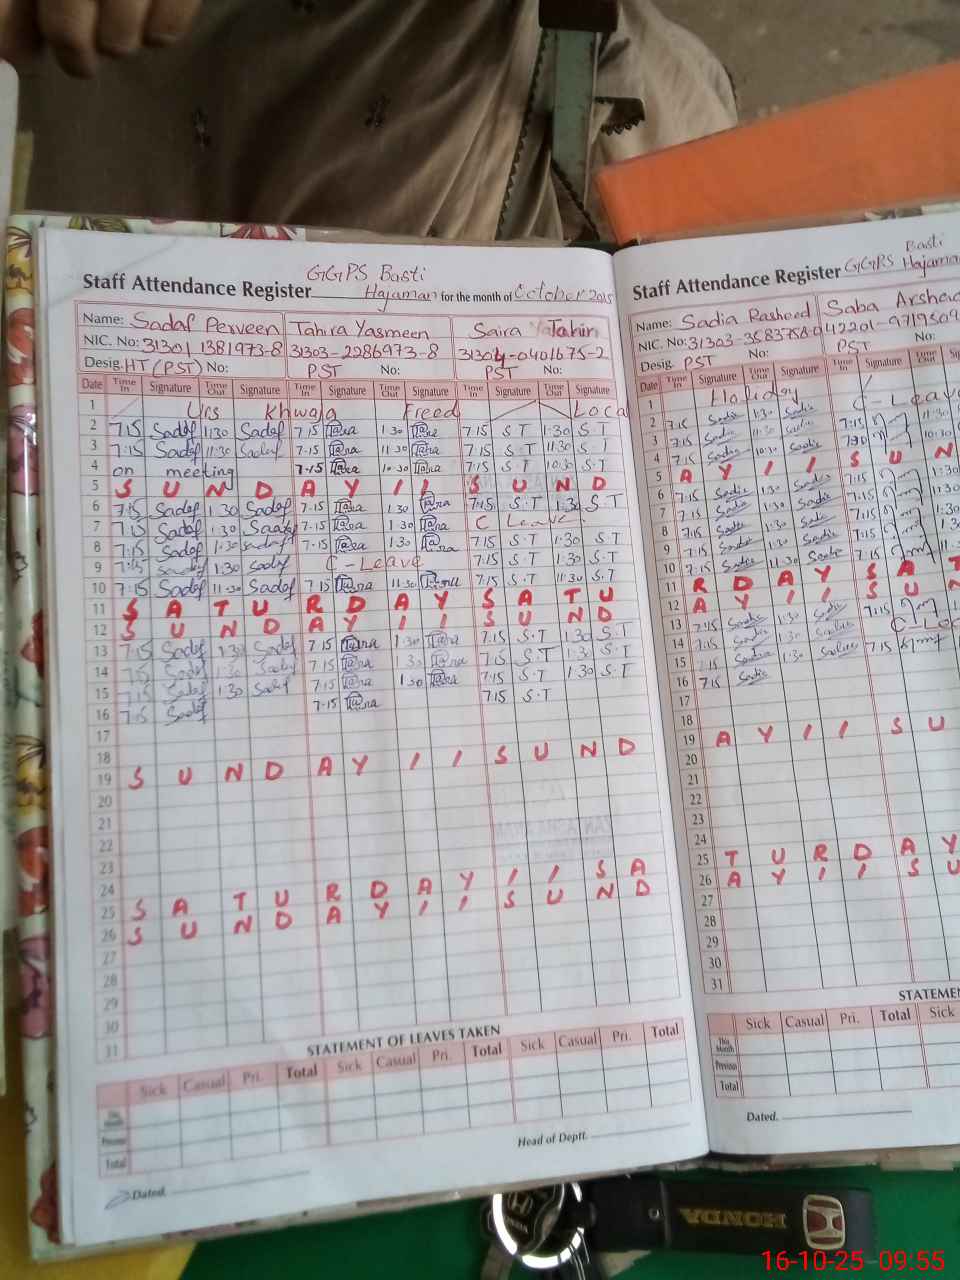 GGPS Basti
Staff Attendance Register Hajaman for the month of October 2025
Name: Sadaf Perveen Tahira Yasmeen Saira Tahir
NIC. No: 31301 1381973-8 31303-2286973-8 31304-0401675-2
Desig. HT (PST) No: PST No: PST
Date Time In Signature Time Out Signature Time In Signature Time Out Signature Time In Signature Time Out Signature
1 Urs Khwaja Freed Local
2 7:15 Sadaf 1:30 Sadaf 7-15 1:30 7:15 S.T 1:30 S.T
3 7:15 Sadaf 11:30 Sadaf 7-15 11:30 7:15 S.T 11:30 S.T
4 on meeting 7-15 10-30 7:15 S.T 10:30 S.T
5 S U N D A Y / / S U N D
6 7:15 Sadaf 1:30 Sadaf 7-15 1:30 7:15 S.T 1:30 S.T
7 7:15 Sadaf 1:30 Sadaf 7-15 1-30 C Leave
8 7:15 Sadaf 1:30 Sadaf 7-15 1:30 7:15 S.T 1:30 S.T
9 7:15 Sadaf 1:30 Sadaf C-Leave 7:15 S.T 1:30 S.T
10 7:15 Sadaf 11:30 Sadaf 7:15 11-30 7:15 S.T 11:30 S.T
11 S A T U R D A Y S A T U
12 S U N D A Y / / S U N D
13 7:15 Sadaf 1:30 Sadaf 7:15 1:30 7:15 S.T 1:30 S.T
14 7:15 Sadaf 1:30 Sadaf 7:15 1:30 7:15 S.T 1:30 S.T
15 7:15 Sadaf 1:30 Sadaf 7:15 1:30 7:15 S.T 1:30 S.T
16 7:15 Sadaf 7-15 7:15 S.T
17
18
19 S U N D A Y / / S U N D
20
21
22
23
24
25 S A T U R D A Y / / S A
26 S U N D A Y / / S U N D
27
28
29
30
31
STATEMENT OF LEAVES TAKEN
Sick Casual Pri. Total Sick Casual Pri. Total Sick Casual Pri. Total
This Month
Previous
Total
Head of Deptt.
Dated.
GGPS Basti
Staff Attendance Register Hajaman
Name: Sadia Rasheed Saba Arshed
NIC. No: 31303-3583758-0 42201-9719509
Desig. PST No: PST No:
Date Time In Signature Time Out Signature Time In Signature Time Out
1 Holiday
2 7:15 Sadia 1:30 Sadia C-Leave
3 7:15 Sadia 11:30 Sadia 7:15 11:30
4 7:15 Sadia 10:30 Sadia 7:20 10:30
5 A Y / / S U N
6 7:15 Sadia 1:30 Sadia 7:15 1:30
7 7:15 Sadia 1:30 Sadia 7:15
8 7:15 Sadia 1:30 Sadia 7:15 1:30
9 7:15 Sadia 1:30 Sadia 7:15 1:30
10 7:15 Sadia 11:30 Sadia 7:15
11 R D A Y S A T
12 A Y / / S U N
13 7:15 Sadia 1:30 Sadia 7:15
14 7:15 Sadia 1:30 Sadia
15 7:15 Sadia 1:30 Sadia 7:15
16 7:15 Sadia
17
18
19 A Y / / S U
20
21
22
23
24
25 T U R D A Y
26 A Y / / S U
27
28
29
30
31
STATEMEN
Sick Casual Pri. Total Sick
This Month
Previous
Total
Dated.
HONDA
16-10-25 09:55